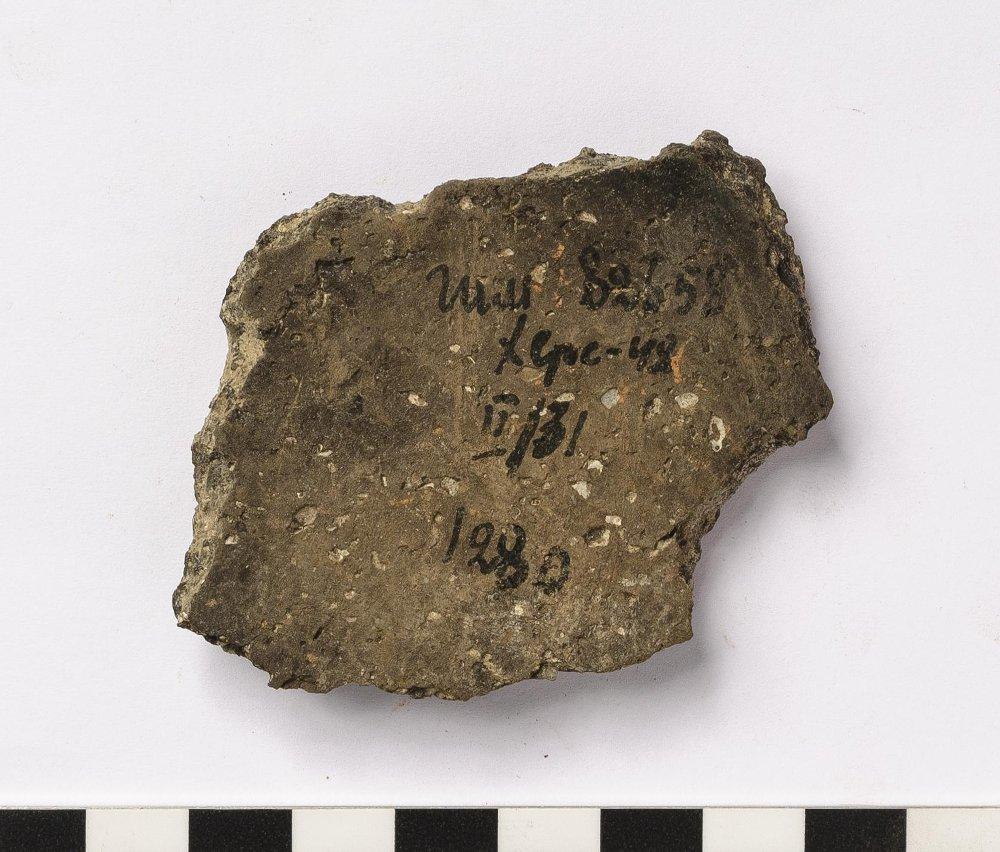 82658
Херс-48
II/31
1280